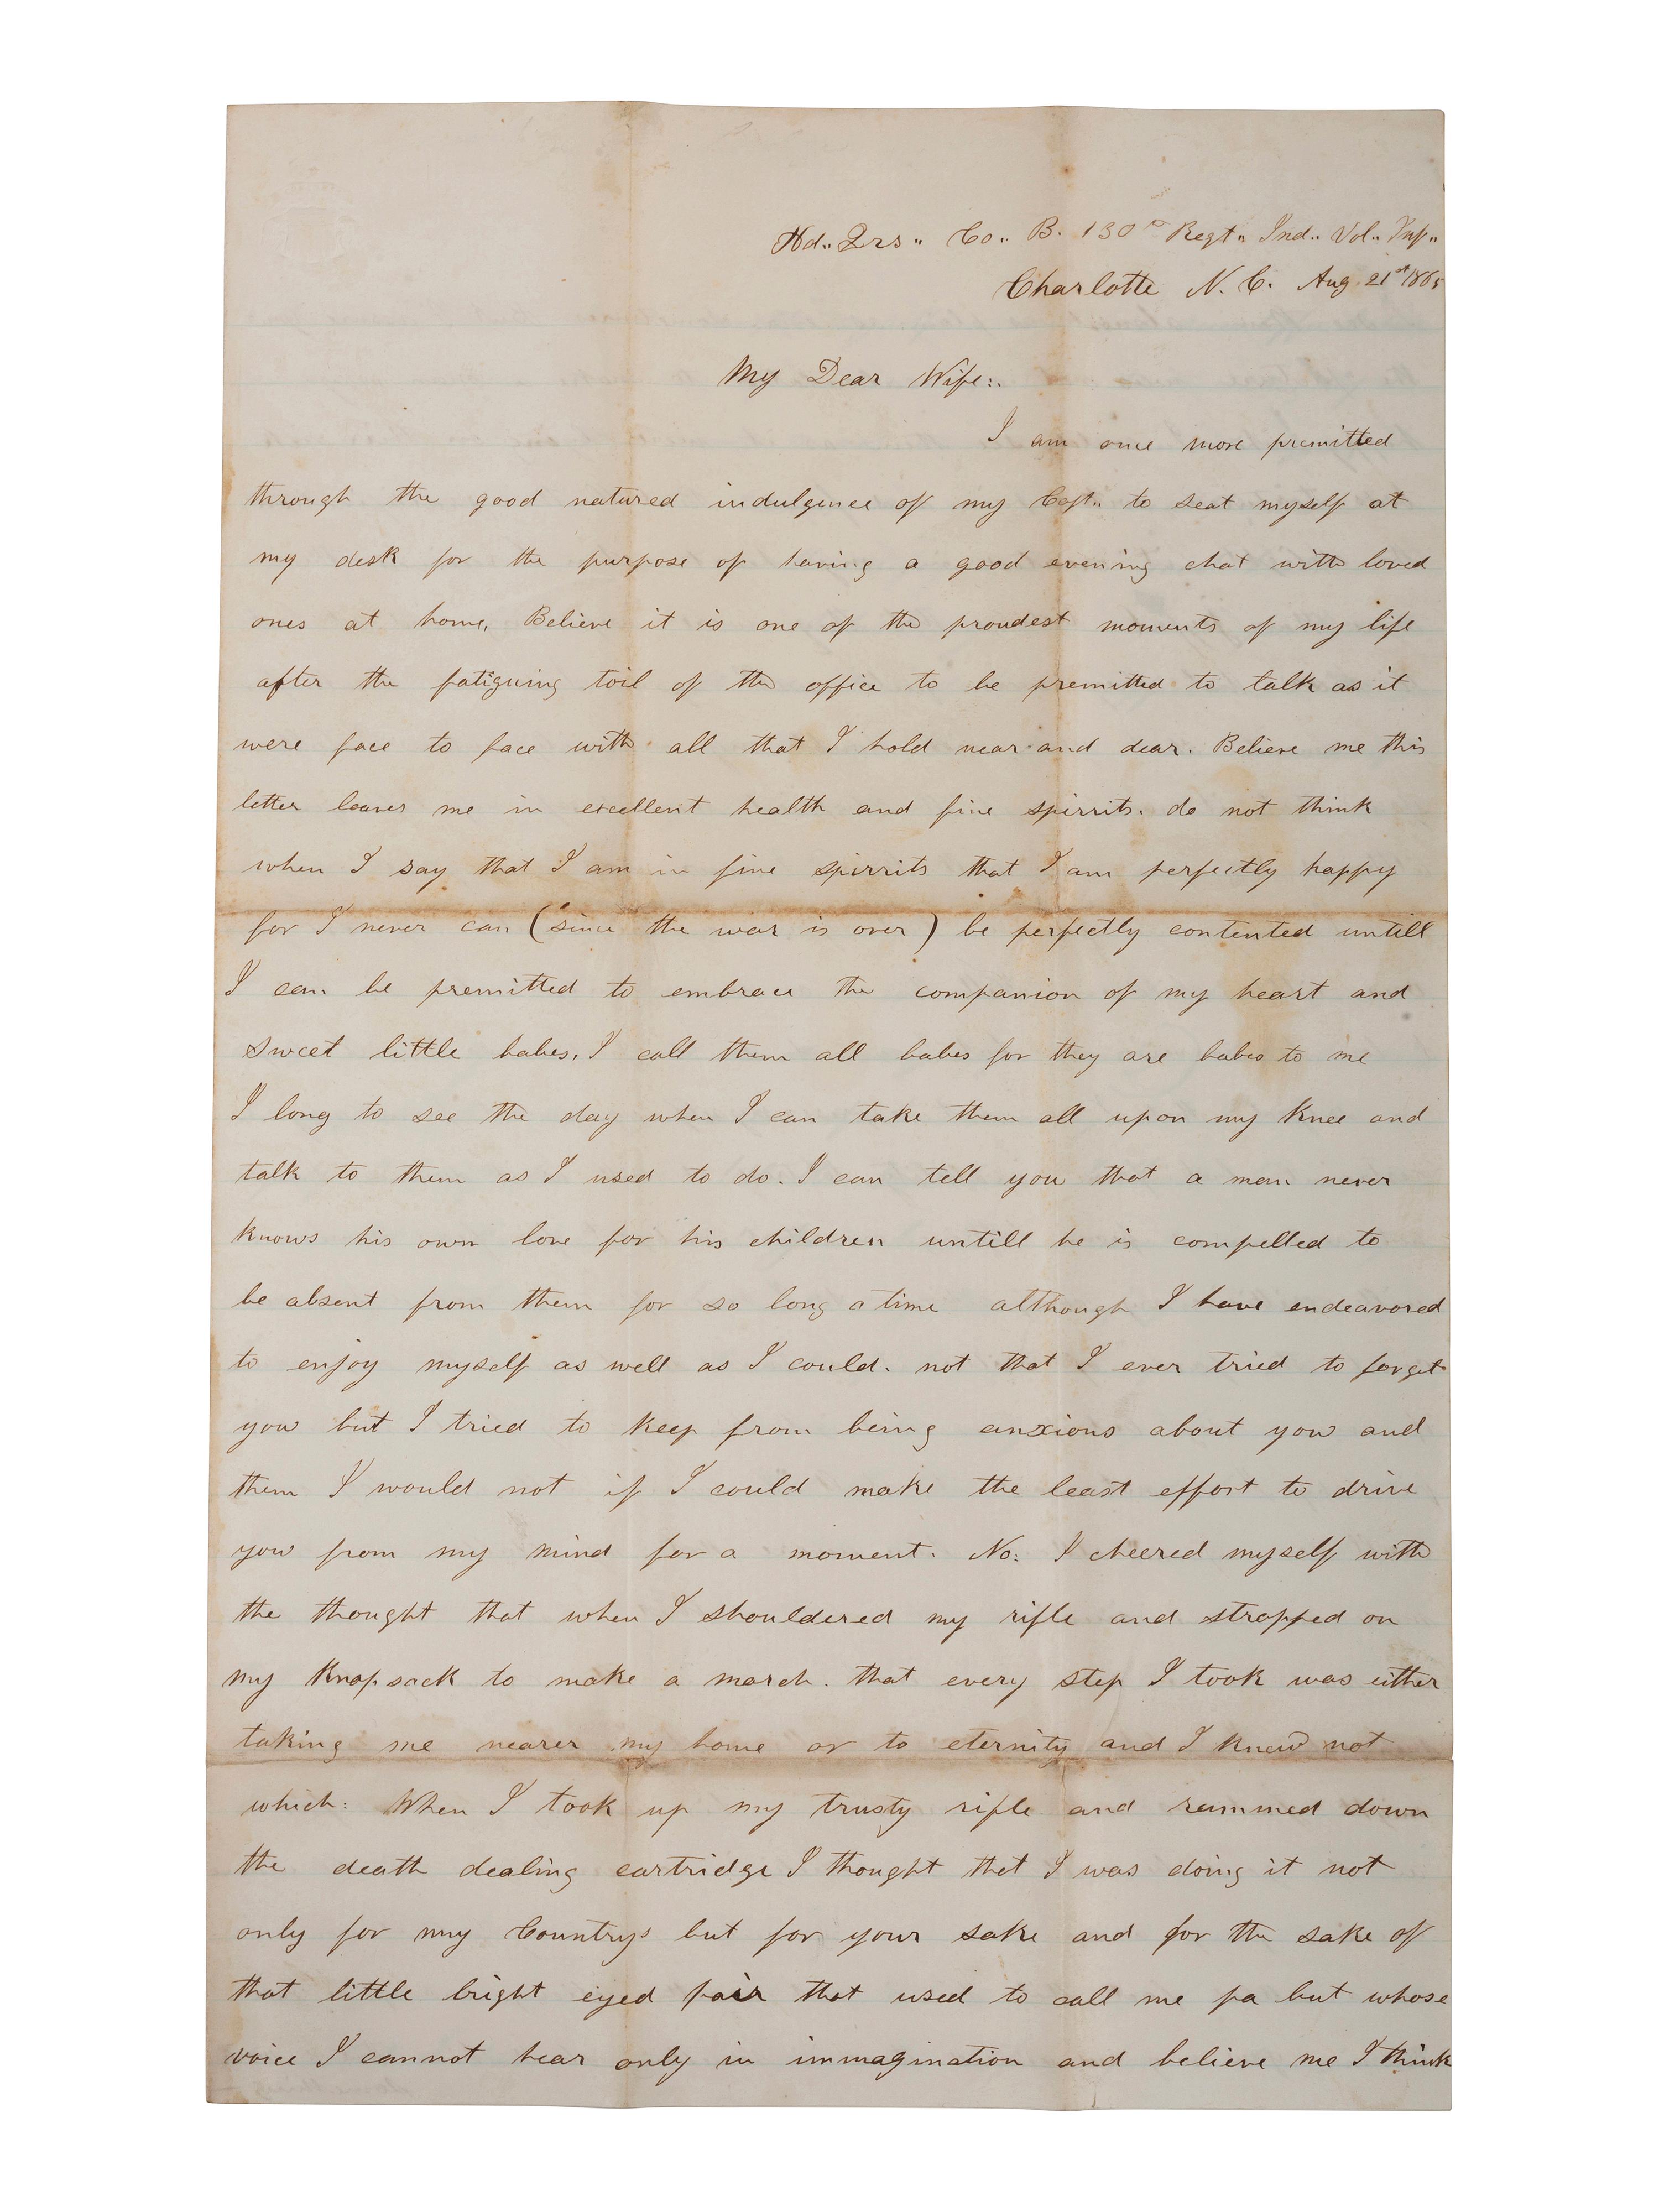 Hd.. Qrs.. Co.. B. 130th Regt.. Ind.. Vol.. Inf..
Charlotte N. C. Aug 21st 1865
My Dear Wife:.
I am once more premitted
through the good natured indulgence of my Capt.. to seat myself at
my desk for the purpose of having a good evening chat with loved
ones at home, Believe it is one of the proudest moments of my life
after the fatiguing toil of the office to be premitted to talk as it
were face to face with all that I hold near and dear. Believe me this
letter leaves me in excellent health and fine spirrits. do not think
when I say that I am in fine spirrits that I am perfectly happy
for I never can (since the war is over) be perfectly contented untill
I can be premitted to embrace the companion of my heart and
sweet little babes, I call them all babes for they are babes to me
I long to see the day when I can take them all upon my Knee and
talk to them as I used to do. I can tell you that a man never
knows his own love for his children untill he is compelled to
be absent from them for so long a time although I have endeavored
to enjoy myself as well as I could. not that I ever tried to forget
you but I tried to keep from being anxious about you and
them I would not if I could make the least effort to drive
you from my mind for a moment. No: I cheered myself with
the thought that when I shouldered my rifle and strapped on
my Knapsack to make a march. that every step I took was either
taking me nearer my home or to eternity and I knew not
which: When I took up my trusty rifle and rammed down
the death dealing cartridge I thought that I was doing it not
only for my Countrys but for your sake and for the sake of
that little bright eyed pair that used to call me pa but whose
voice I cannot hear only in immagination and believe me I think